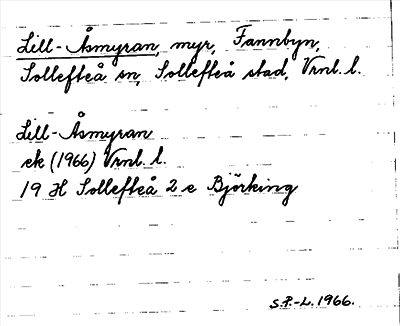 Lill-Åsmyran, myr, Fannbyn,
Sollefteå sn, Sollefteå stad, Vrnl. l.
Lill-Åsmyran
ek (1966) Vrnl. l.
19 H Sollefteå 2 e Björking
S.P.-L. 1966.